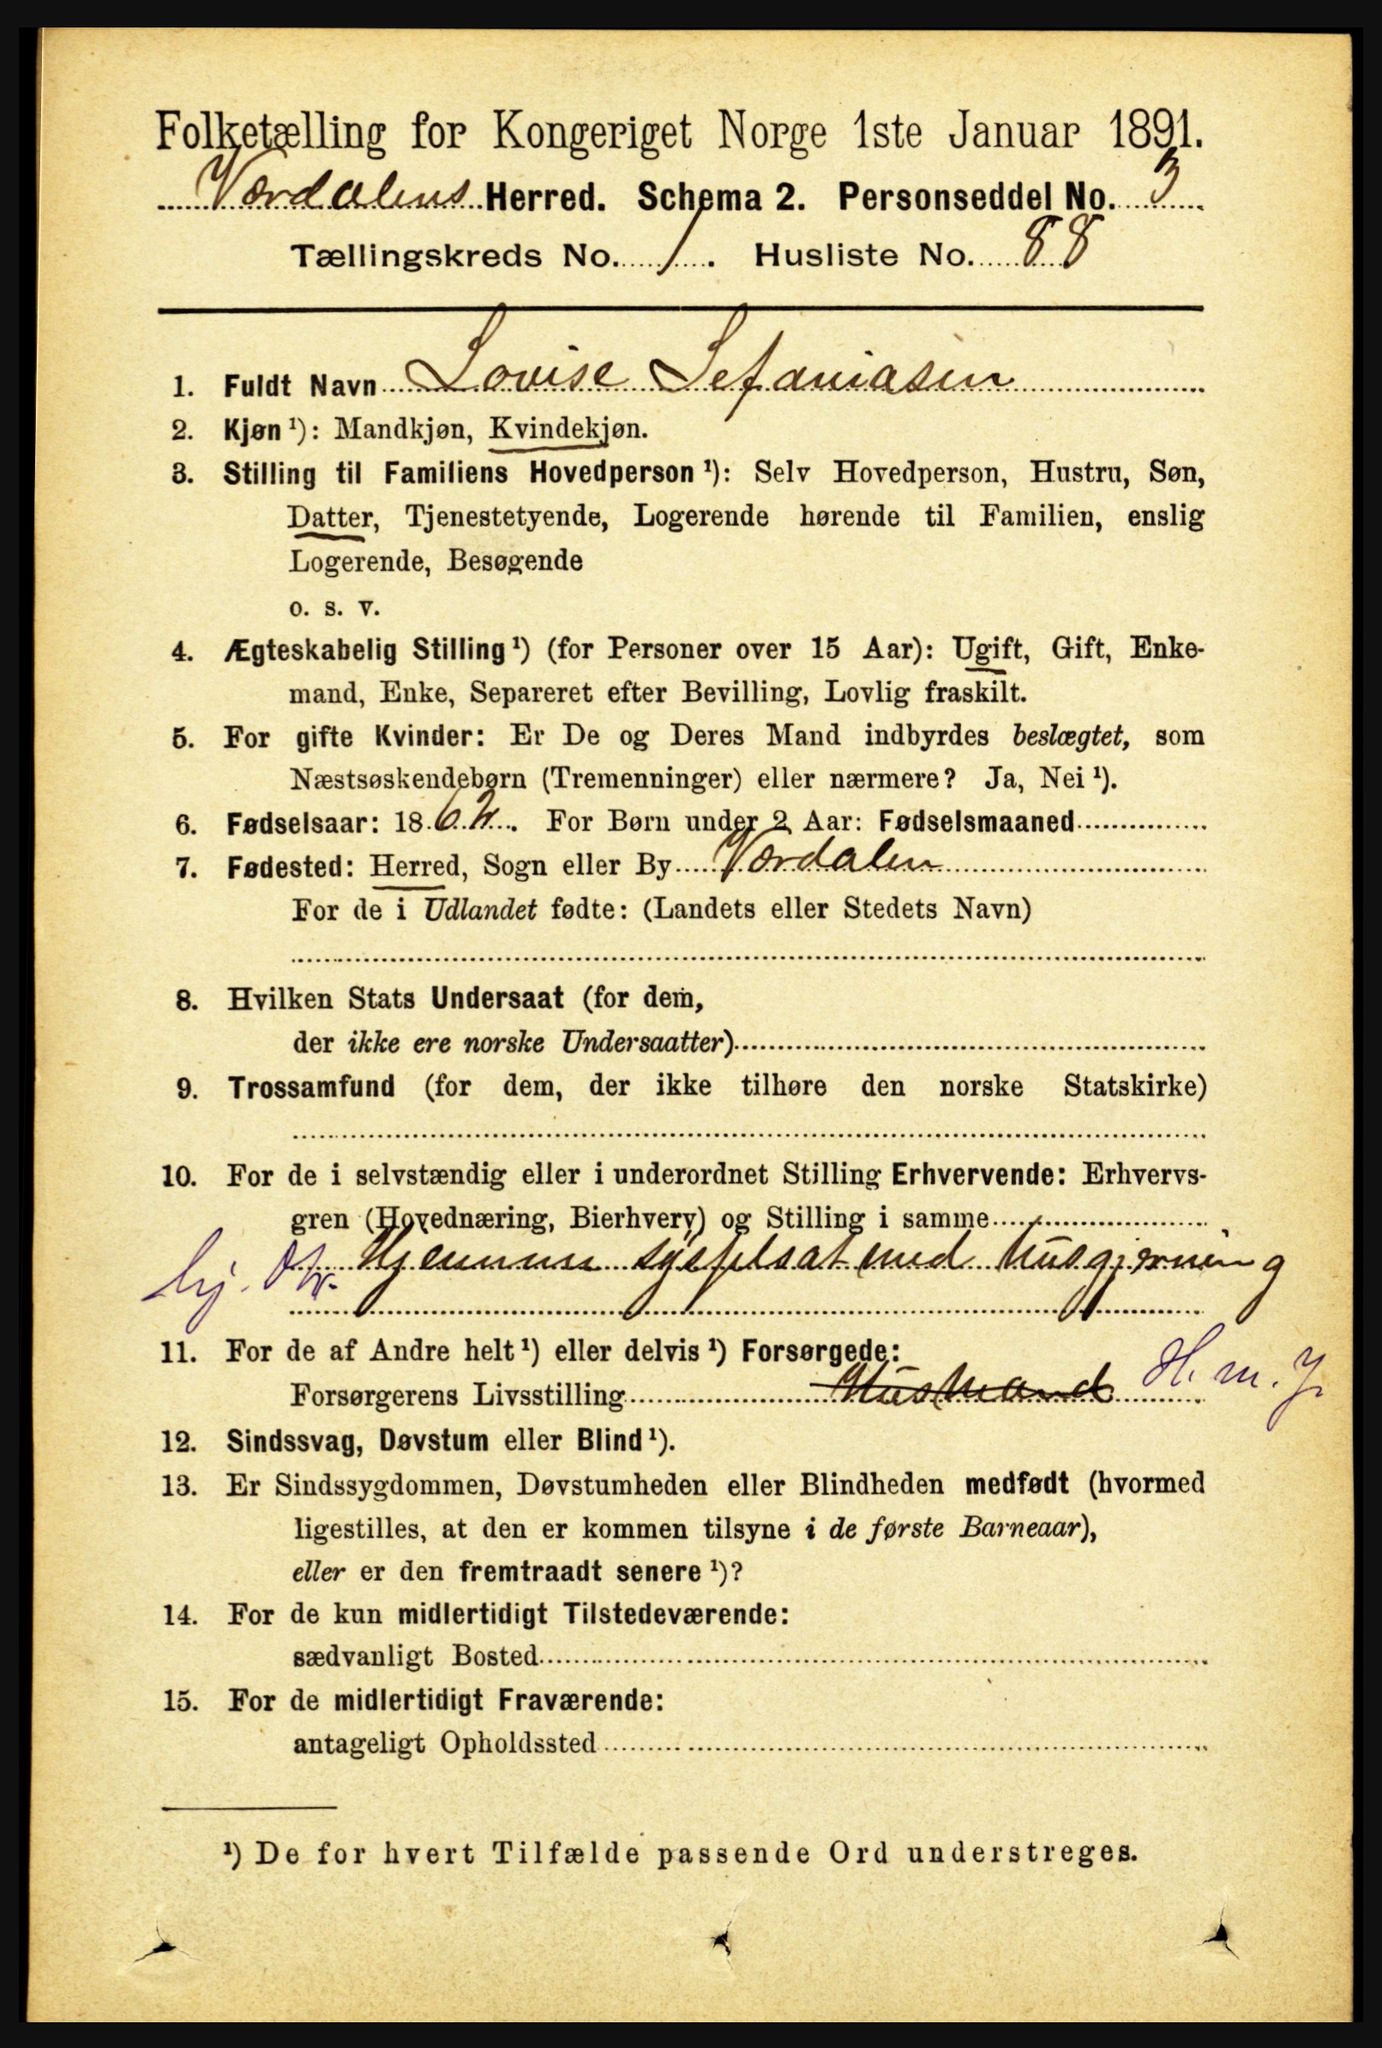 Folketælling for Kongeriget Norge 1ste Januar 1891.
Værdalens Herred. Schema 2. Personseddel No. 3
Tællingskreds No. 1. Husliste No. 88
1. Fuldt Navn Lovise Sefaniasen
2. Kjøn ¹): Mandkjøn, Kvindekjøn.
3. Stilling til Familiens Hovedperson ¹): Selv Hovedperson, Hustru, Søn,
Datter, Tjenestetyende, Logerende hørende til Familien, enslig
Logerende, Besøgende
o. s. v.
4. Ægteskabelig Stilling ¹) (for Personer over 15 Aar): Ugift, Gift, Enke-
mand, Enke, Separeret efter Bevilling, Lovlig fraskilt.
5. For gifte Kvinder: Er De og Deres Mand indbyrdes beslægtet, som
Næstsøskendebørn (Tremenninger) eller nærmere? Ja, Nei ¹).
6. Fødselsaar: 1862. For Børn under 2 Aar: Fødselsmaaned
7. Fødested: Herred, Sogn eller By Værdalen
For de i Udlandet fødte: (Landets eller Stedets Navn)
8. Hvilken Stats Undersaat (for dem,
der ikke ere norske Undersaatter)
9. Trossamfund (for dem, der ikke tilhøre den norske Statskirke)
10. For de i selvstændig eller i underordnet Stilling Erhvervende: Erhvervs-
gren (Hovednæring, Bierhverv) og Stilling i samme
Hjemme sysselsat med husgjerning
11. For de af Andre helt ¹) eller delvis ¹) Forsørgede:
Forsørgerens Livsstilling Husmand H. m. J.
12. Sindssvag, Døvstum eller Blind ¹).
13. Er Sindssygdommen, Døvstumheden eller Blindheden medfødt (hvormed
ligestilles, at den er kommen tilsyne i de første Barneaar),
eller er den fremtraadt senere ¹)?
14. For de kun midlertidigt Tilstedeværende:
sædvanligt Bosted
15. For de midlertidigt Fraværende:
antageligt Opholdssted
¹) De for hvert Tilfælde passende Ord understreges.